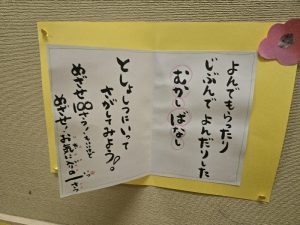 よんでもらったり
じぶんで よんだりした
むかしばなし
としょしつにいって
さがしてみよう。
めざせ100さつ!もいいけど
めざせ!お気に入りの1さつ